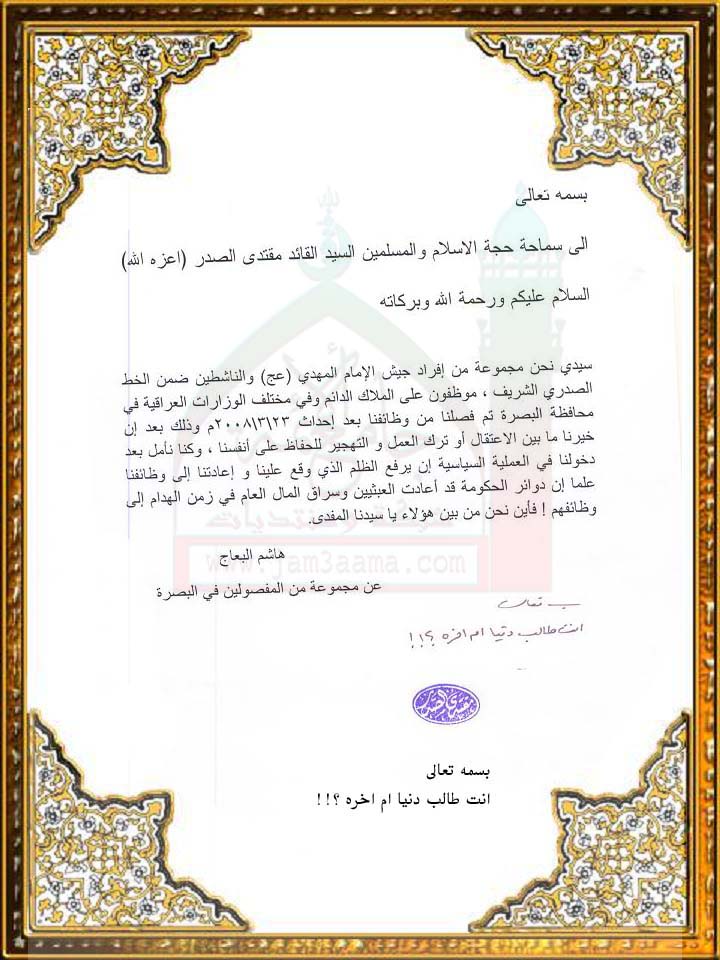 بسمه تعالى
الى سماحة حجة الاسلام والمسلمين السيد القائد مقتدى الصدر (اعزه الله)
السلام عليكم ورحمة الله وبركاته
سيدي نحن مجموعة من إفراد جيش الإمام المهدي (عج) والناشطين ضمن الخط
الصدري الشريف ، موظفون على الملاك الدائم وفي مختلف الوزارات العراقية في
محافظة البصرة تم فصلنا من وظائفنا بعد إحداث ٢٠٠٨\٣\٢٣م وذلك بعد إن
خيرنا ما بين الاعتقال أو ترك العمل و التهجير للحفاظ على أنفسنا ، وكنا نأمل بعد
دخولنا في العملية السياسية إن يرفع الظلم الذي وقع علينا و إعادتنا إلى وظائفنا
علما إن دوائر الحكومة قد أعادت العبثيين وسراق المال العام في زمن الهدام إلى
وظائفهم ! فأين نحن من بين هؤلاء يا سيدنا المفدى.
www.jam3aama.com
هاشم البعاج
عن مجموعة من المفصولين في البصرة
انت طالب دنيا ام اخره ؟!!
بسمه تعالى
انت طالب دنيا ام اخره ؟!!